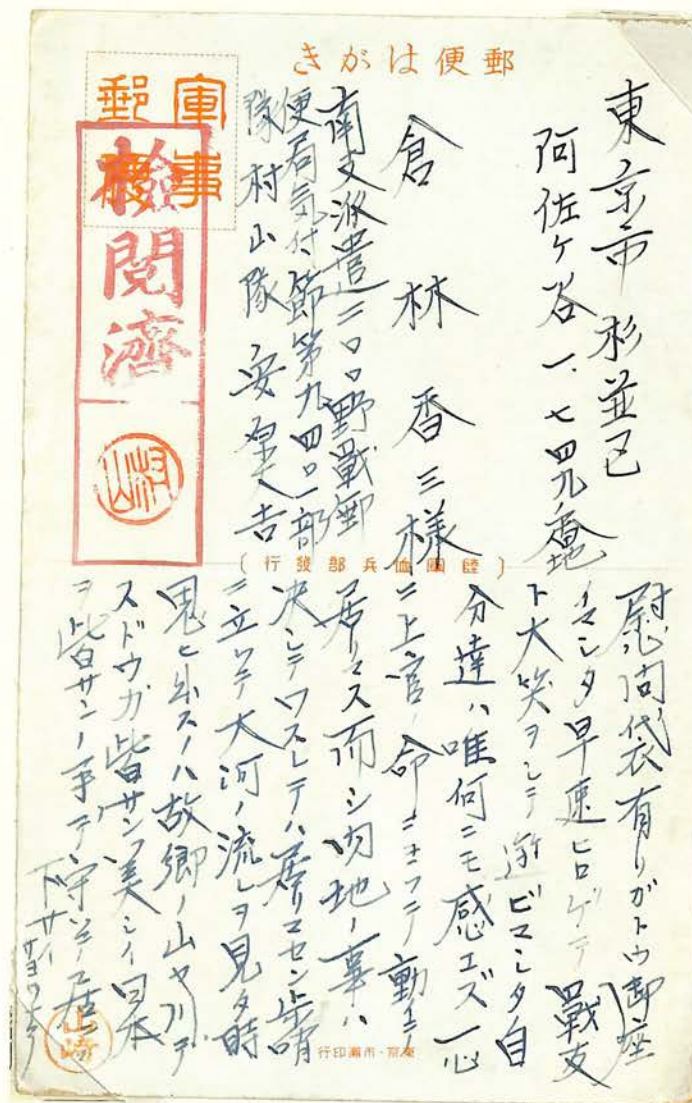 郵便はがき
軍事
郵便
検閲濟
村山
東京市 杉並区
阿佐ヶ谷一、七四九番地
倉林香三様
南支派遣二〇口野戰郵
便局気付、節第九四〇一部
隊村山隊 安泉吉
〔陸軍恤兵部發行〕
慰问袋有リガトウ御座
イマシタ早速ヒロゲテ戰友
ト大笑ヲシテ遊ビマシタ自
分達ハ唯何ニモ感エズ一心
ニ上官ノ命ニヨッテ動イテ
居リマス而シ内地ノ事ハ
決シテワスレテハ居リマセン歩哨
ニ立ッテ大河ノ流レヲ見タ時
思ヒ出スノハ故郷ノ山ヤ川デ
スドウカ皆サン美シイ日本
ヲ皆サンノ手デ守ッテ居テ
下サイ
サヨウナラ
山崎
東京・市瀨印行